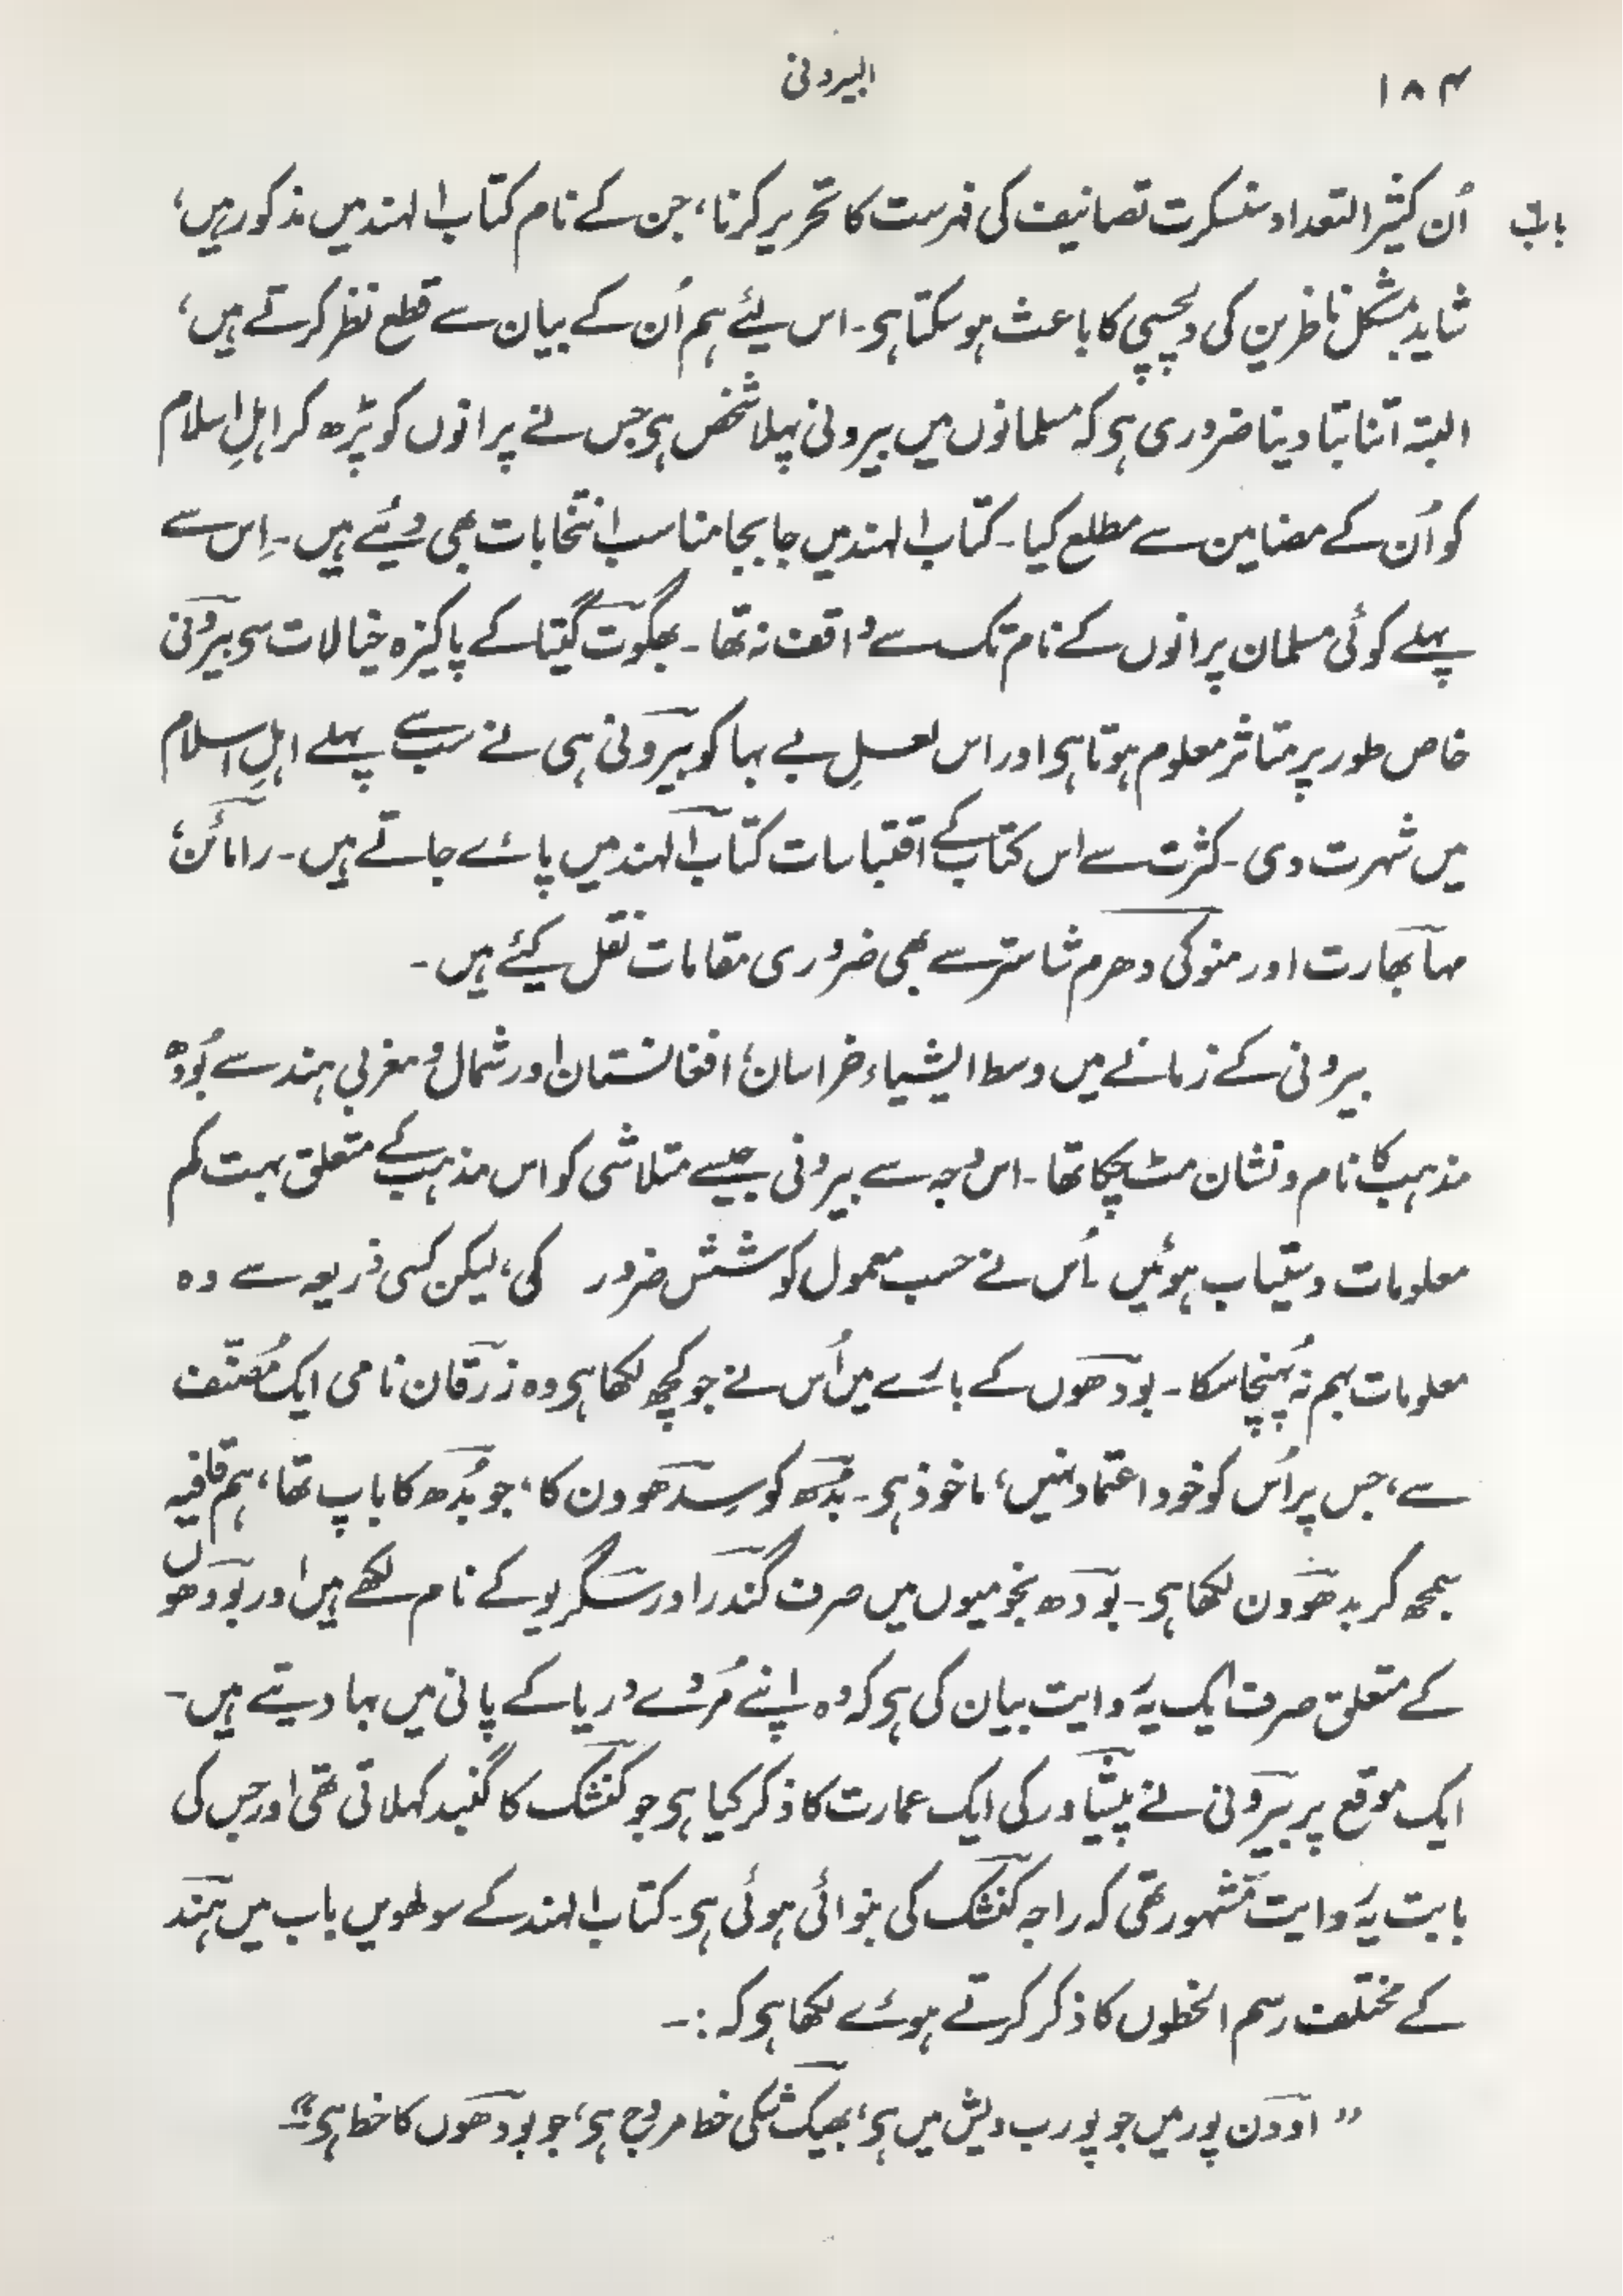 ۱۸۴
البیرونی
باب
اُن کثیر التعداد سنسکرت تصانیف کی فہرست کا تحریر کرنا، جن کے نام کتاب الہند میں مذکور ہیں،
شاید بمشکل ناظرین کی دلچسپی کا باعث ہو سکتا ہی۔ اس لیٔے ہم اُن کے بیان سے قطع نظر کرتے ہیں،
البتہ اتنا بتا دینا ضروری ہی کہ مسلمانوں میں بیرونی پہلا شخص ہی جس نے پرانوں کو پڑھ کر اہلِ اسلام
کو اُن کے مضامین سے مطلع کیا۔ کتاب الہند میں جابجا مناسب انتخابات بھی دیٔے ہیں۔ اِس سے
پہلے کوئی مسلمان پرانوں کے نام تک سے واقف نہ تھا۔ بھگوت گیتا کے پاکیزہ خیالات سی بیرونی
خاص طور پر متاثر معلوم ہوتا ہی اور اس لعلِ بے بہا کو بیرونی ہی نے سب سے پہلے اہلِ اسلام
میں شہرت دی۔ کثرت سے اس کتاب کے اقتباسات کتاب الہند میں پائے جاتے ہیں۔ رامائن،
مہا بھارت اور منو کی دھرم شاستر سے بھی ضروری مقامات نقل کیٔے ہیں۔
بیرونی کے زمانے میں وسط ایشیاء خراسان، افغانستان اور شمال و مغربی ہند سے بُودھ
مذہب کا نام و نشان مٹ چکا تھا۔ اس وجہ سے بیرونی جیسے متلاشی کو اس مذہب کے متعلق بہت کم
معلومات دستیاب ہوئیں۔ اُس نے حسب معمول کوشش ضرور کی، لیکن کسی ذریعہ سے وہ
معلومات بہم نہ پُہنچا سکا۔ بودھوں کے بارے میں اُس نے جو کچھ لکھا ہی وہ زرقان نامی ایک مُصنّف
سے، جس پر اُس کو خود اعتماد نہیں، ماخوذ ہی۔ بُدھ کو سدھودن کا، جو بُدھ کا باپ تھا، ہم قافیہ
سمجھ کر بدھودن لکھا ہی۔ بودھ نجومیوں میں صرف گندر اور سگریو کے نام لکھے ہیں اور بودھوں
کے متعلق صرف ایک یہ روایت بیان کی ہی کہ وہ اپنے مُردے دریا کے پانی میں بہا دیتے ہیں۔
ایک موقع پر بیرونی نے پشاور کی ایک عمارت کا ذکر کیا ہی جو کنشک کا گنبد کہلاتی تھی اور جس کی
بابت یہ روایت مشہور تھی کہ راجہ کنشک کی بنوائی ہوئی ہی۔ کتاب الہند کے سولھویں باب میں ہند
کے مختلف رسم الخطوں کا ذکر کرتے ہوئے لکھا ہی کہ :۔
” اودن پور میں جو پورب دیش میں ہی، بھیکشکی خط مروج ہی، جو بودھوں کا خط ہی“۔